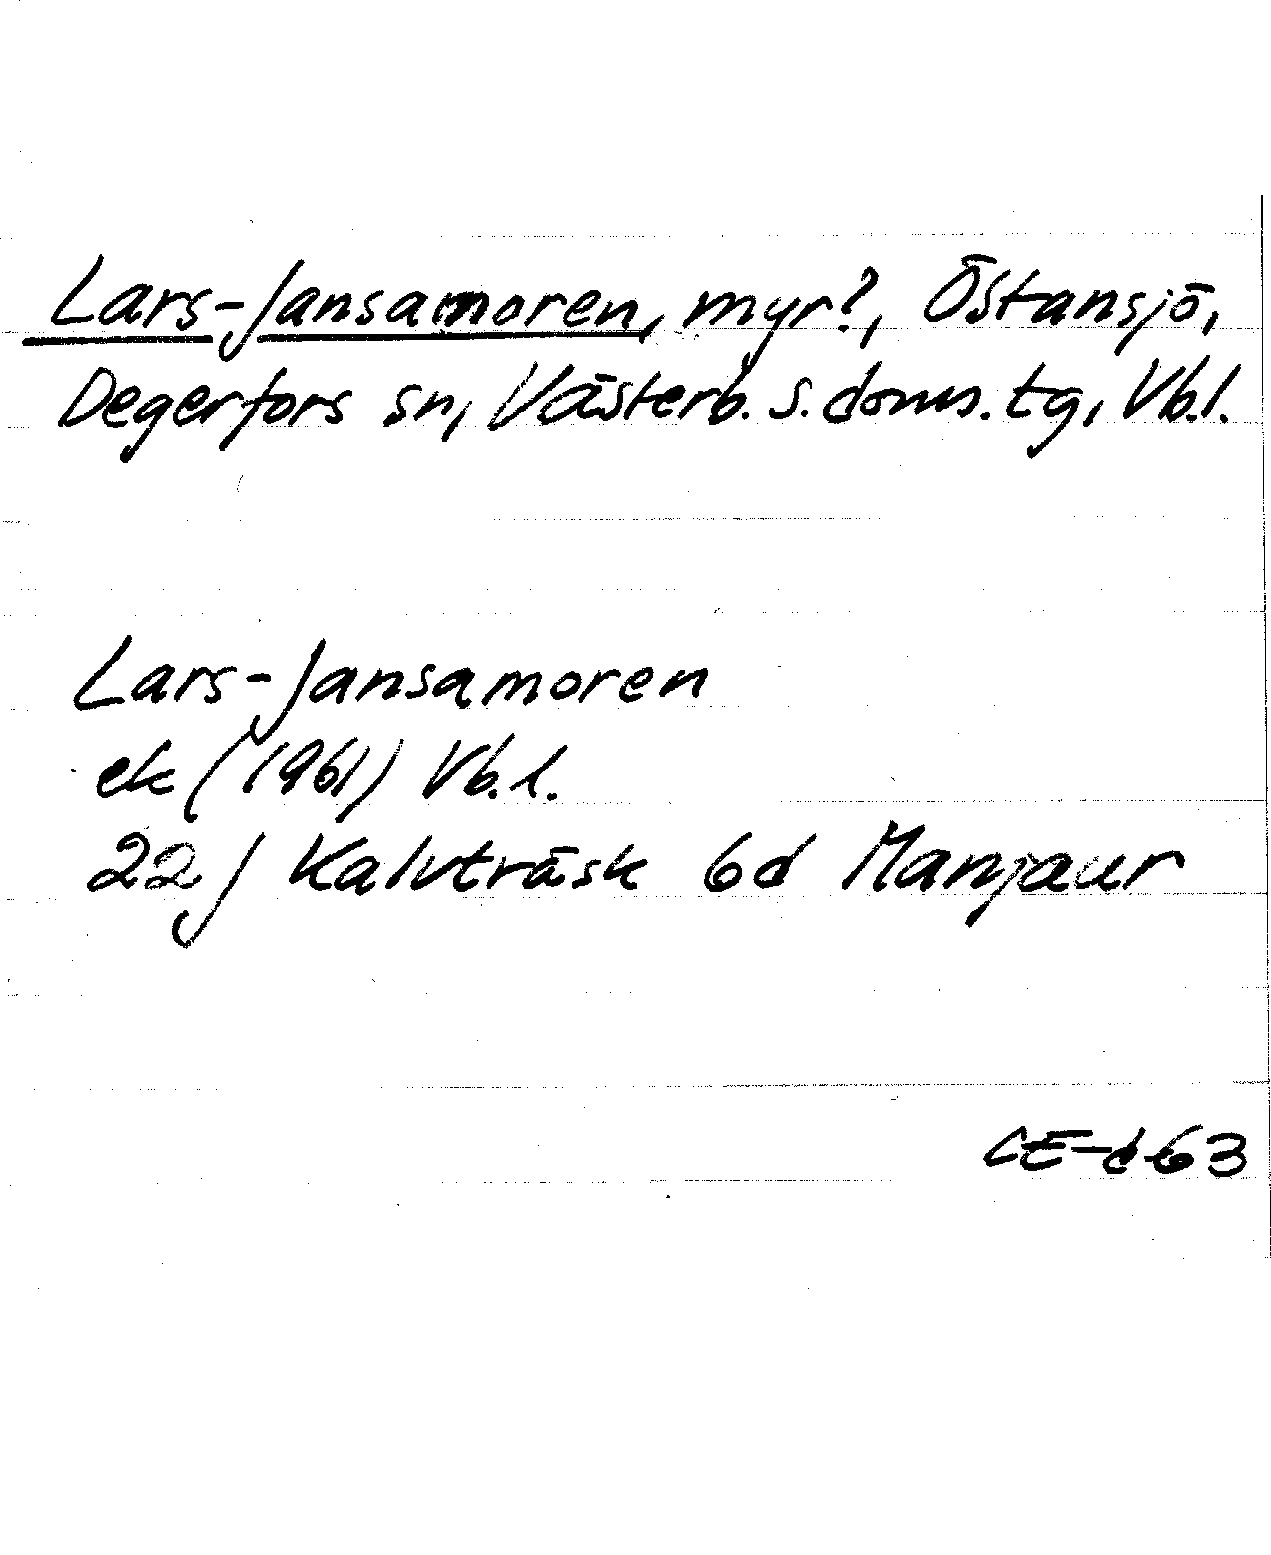 Lars-Jansamoren, myr?, Östansjö,
Degerfors sn, Västerb. s. doms. tg, Vb.l.
Lars-Jansamoren
ek (1961) Vb.l.
22J Kalvträsk 6d Manjaur
CE-d-63